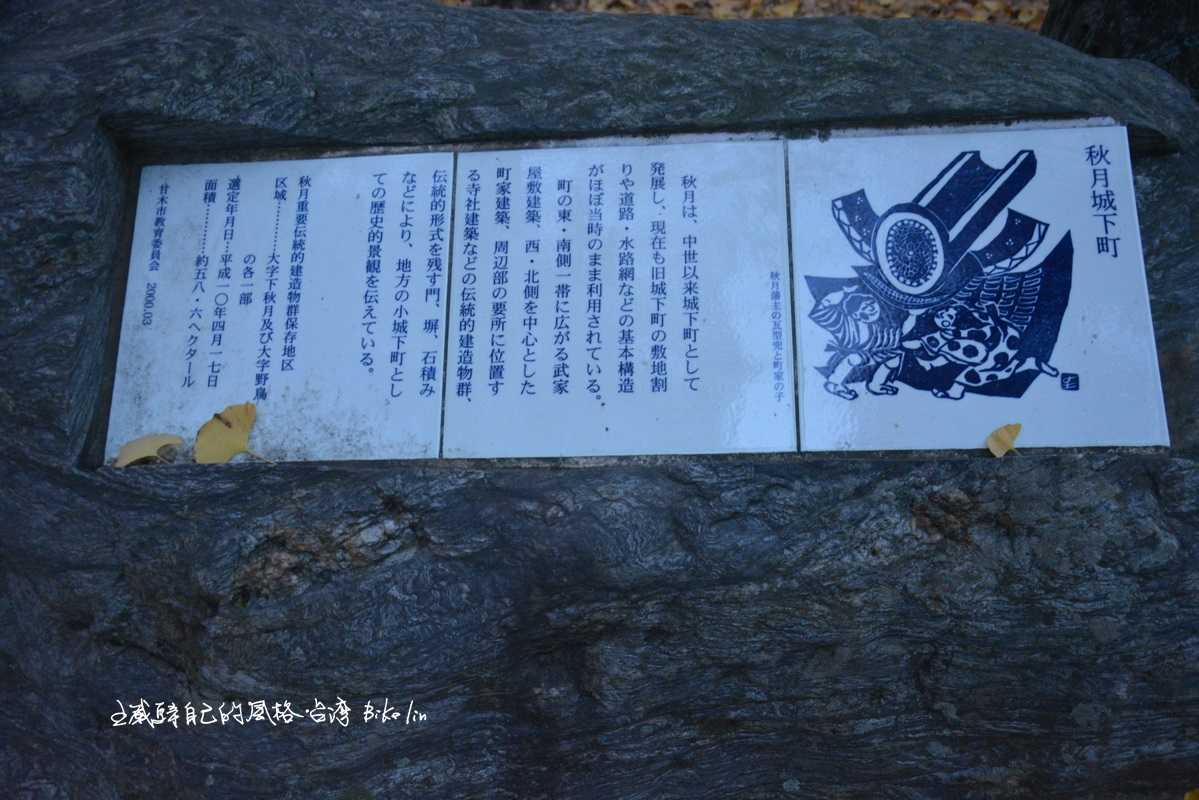 秋月城下町
秋月藩主の瓦型兜と町家の子
秋月は、中世以来城下町として
発展し、現在も旧城下町の敷地割
りや道路・水路網などの基本構造
がほぼ当時のまま利用されている。
町の東・南側一帯に広がる武家
屋敷建築、西・北側を中心とした
町家建築、周辺部の要所に位置す
る寺社建築などの伝統的建造物群、
伝統的形式を残す門、塀、石積み
などにより、地方の小城下町とし
ての歴史的景観を伝えている。
秋月重要伝統的建造物群保存地区
区域………大字下秋月及び大字野鳥
の各一部
選定年月日…平成一〇年四月一七日
面積…………約五八・六ヘクタール
甘木市教育委員会 2000.03
自己的風格.台湾 Bike lin